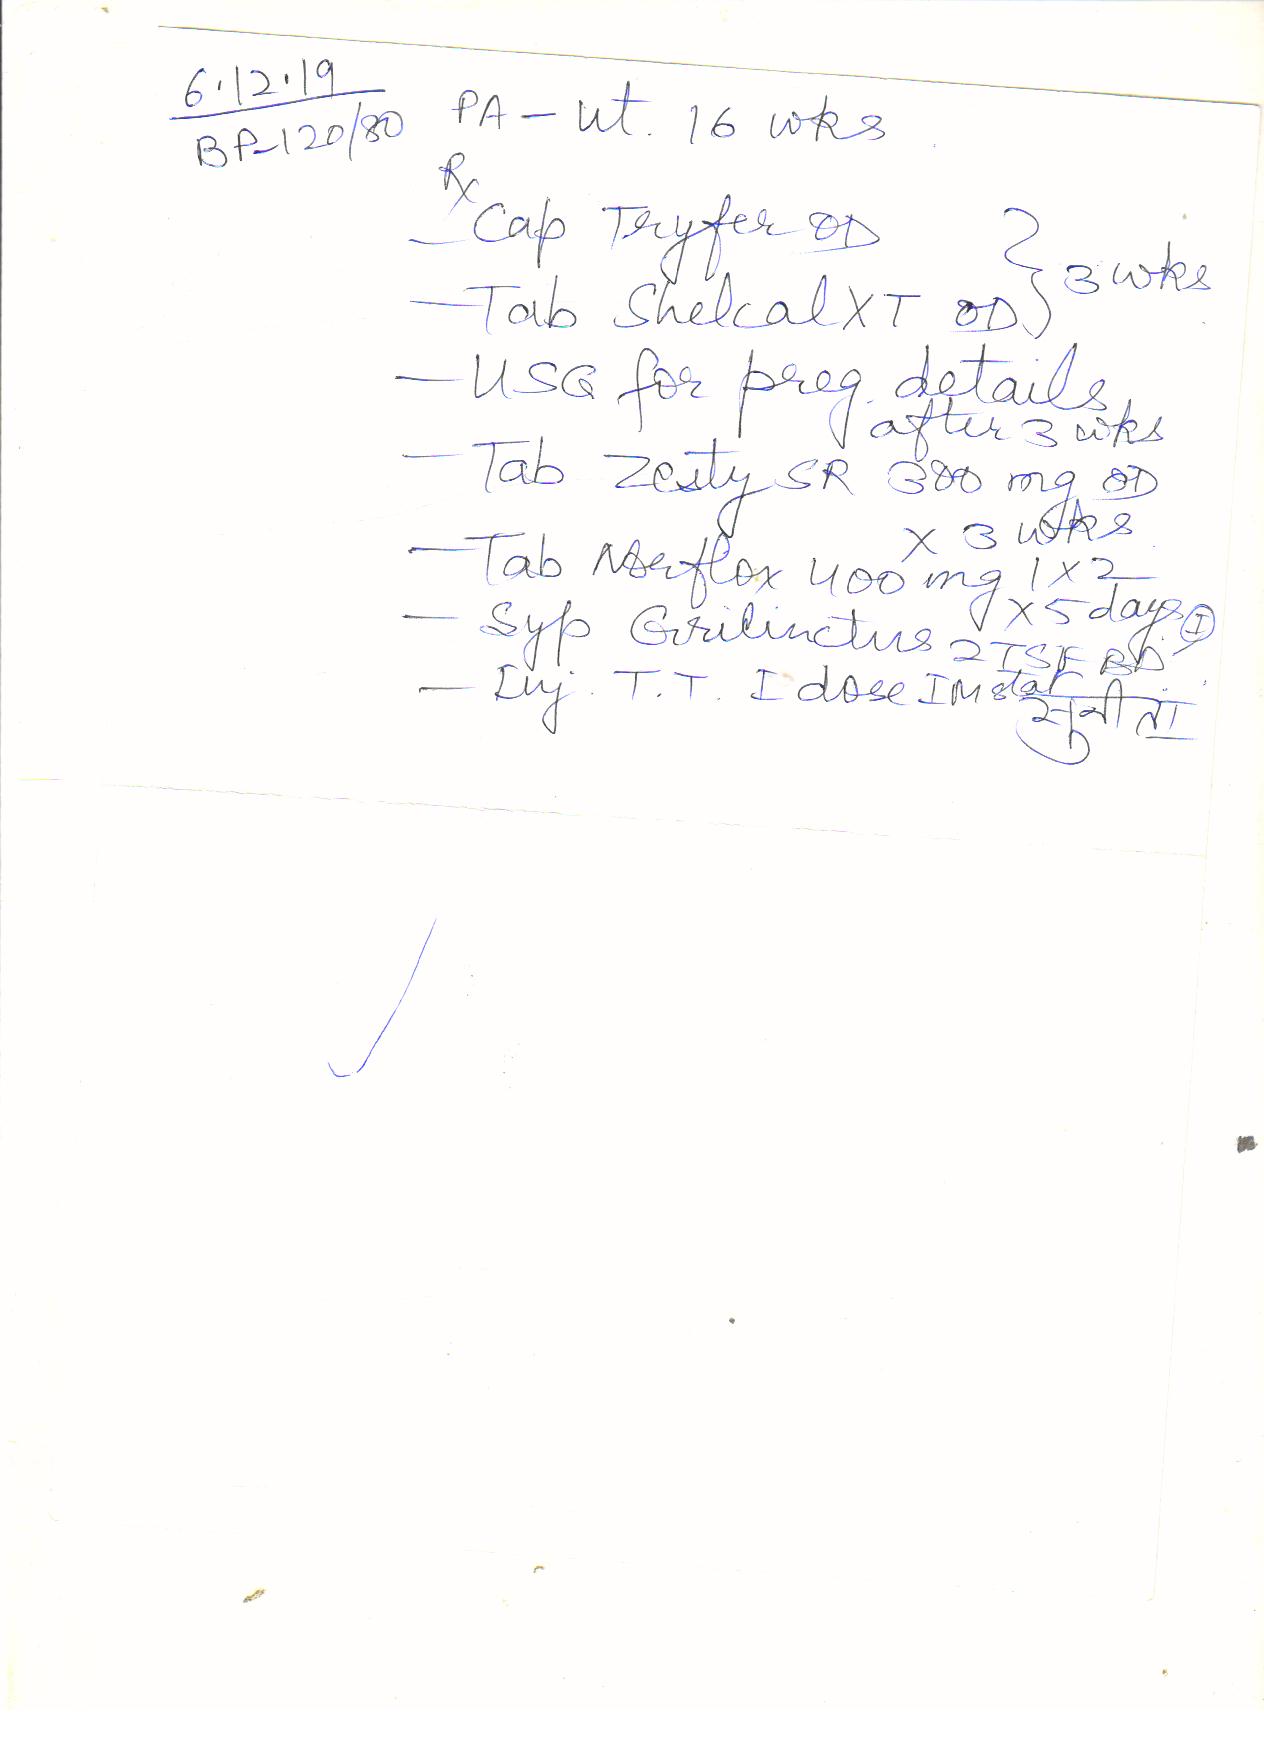 6.12.19
BP-120/80 PA - Ut. 16 wks
Rx
- Cap Tryfer OD
- Tab Shelcal XT OD } 3 wks
- USG for preg. details
after 3 wks
- Tab Zesty SR 300 mg OD
x 3 wks
- Tab Norflox 400 mg 1 x 2
x 5 days
- Syp Grilinctus 2 TSF BD
- Inj. T.T. I dose IM stat (I)
सुनीता